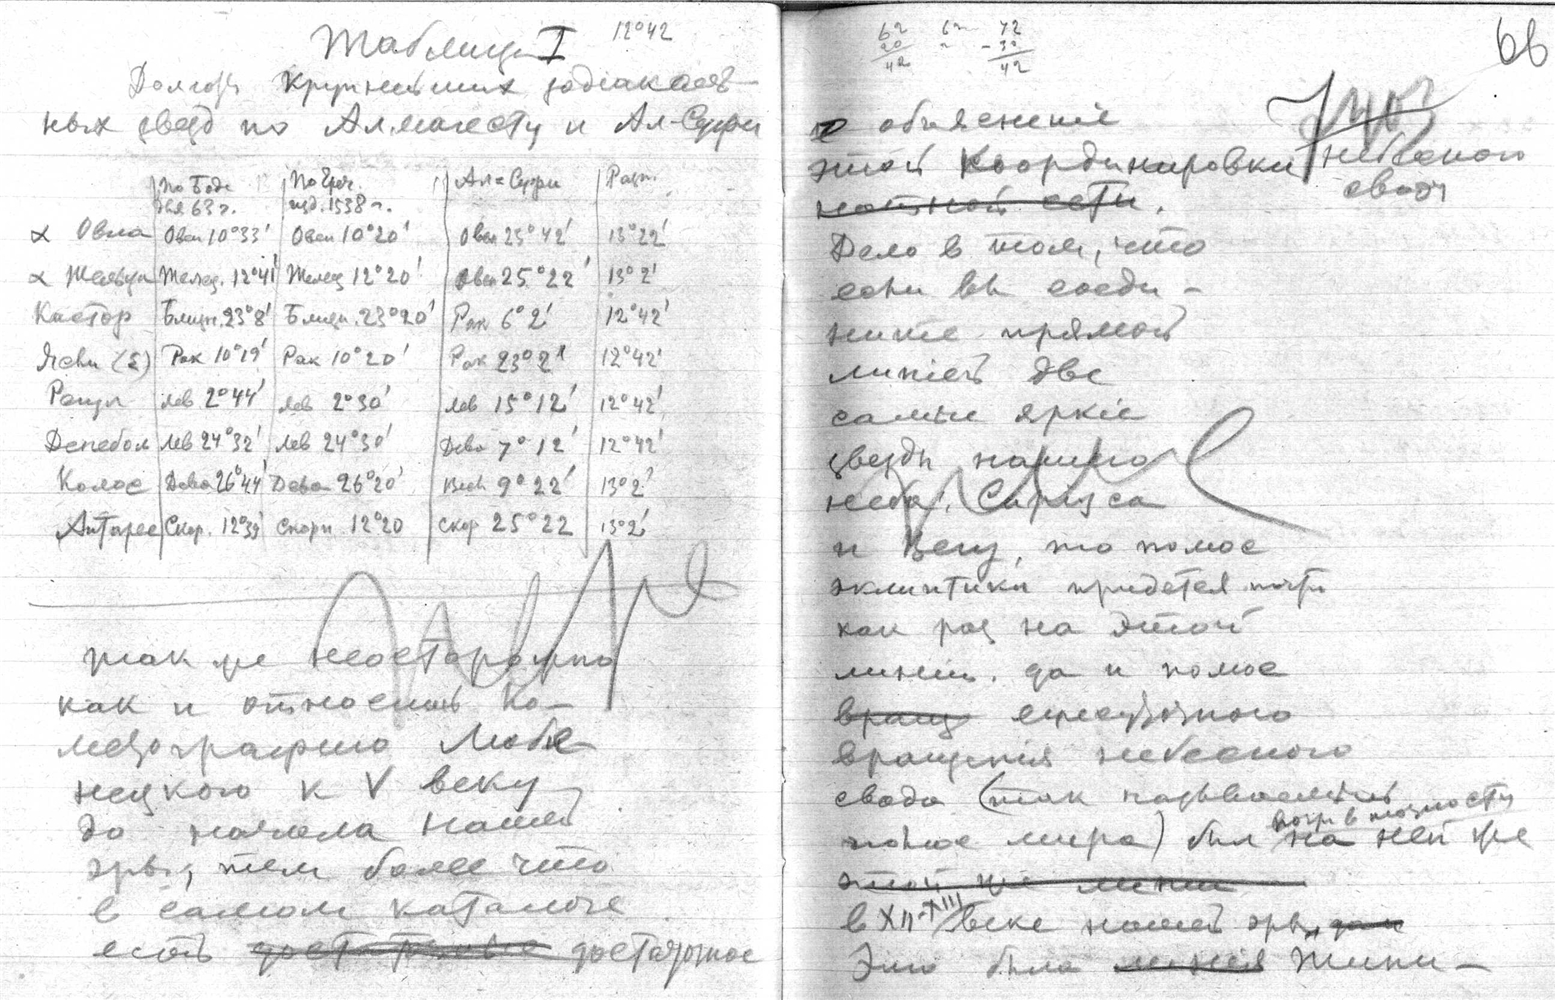 Таблица I 12°42
Долготы крупнейших зодіакаль-
ных звезд по Алмагесту и Ал-Суфи
По Боде для 63 г. По Греч. изд. 1538 г. Ал-Суфи Разн.
α Овна Овен 10°33' Овен 10°20' Овен 23°42' 13°22'
α Тельца Телец. 12°41' Телец 12°20' Овен 25°22' 13°2'
Кастор Близн. 23°8' Близн. 23°20' Рак 6°2' 12°42'
Ясли (ε) Рак 10°19' Рак 10°20' Рак 23°2' 12°42'
Регул Лев 2°44' Лев 2°30' Лев 15°12' 12°42'
Денебол Лев 24°32' Лев 24°30' Дева 7°12' 12°42'
Колос Дева 26°44' Дева 26°20' Весы 9°22' 13°2'
Антарес Скор. 12°39' Скорп 12°20 Скор 25°22 13°2'
так же неосторожно
как и относить Ко-
метографию Любе-
нецкого к V веку
до начала нашей
эры, тем более что
в самом каталоге
есть достаточное
62 62 72
20 - 30
42 42
66
объясненіе
этой Координировки небесного
свода
натной сети.
Дело в том, что
если вы соеди-
ните прямой
линіей две
самые яркіе
звезды нашего
неба: Сиріуса
и Вегу, то полюс
эклиптики придется почти
как раз на этой
линіи. да и полюс
вращ ежесуточного
вращенія небесного
свода (так называемый
почти в точности
полюс мира) был на ней же
этой же линіи
в XII-XIII веке нашей эры,
Это была линія